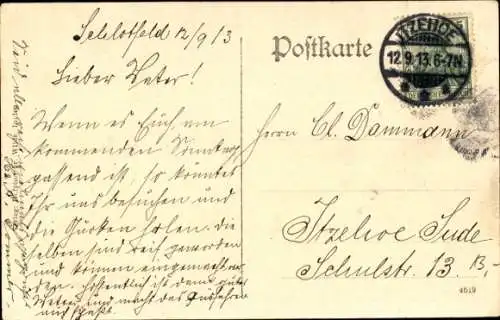 Schlotfeld 12/9 13
Lieber Vater!
Wenn es Euch am
kommenden Sonntag
passend ist, so könntet
Ihr uns besuchen und
die Gurken holen. die
selben sind reif geworden
und können eingemacht wer
den. hoffentlich ist dem guten
Vater und macht das
Postkarte
ITZEHOE
12.9.13.6-7N.
Herrn Cl. Dammann
Itzehoe Sude
Schulstr. 13
4619